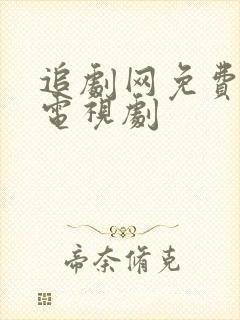 追劇网免費
電視劇
帝奈脩克